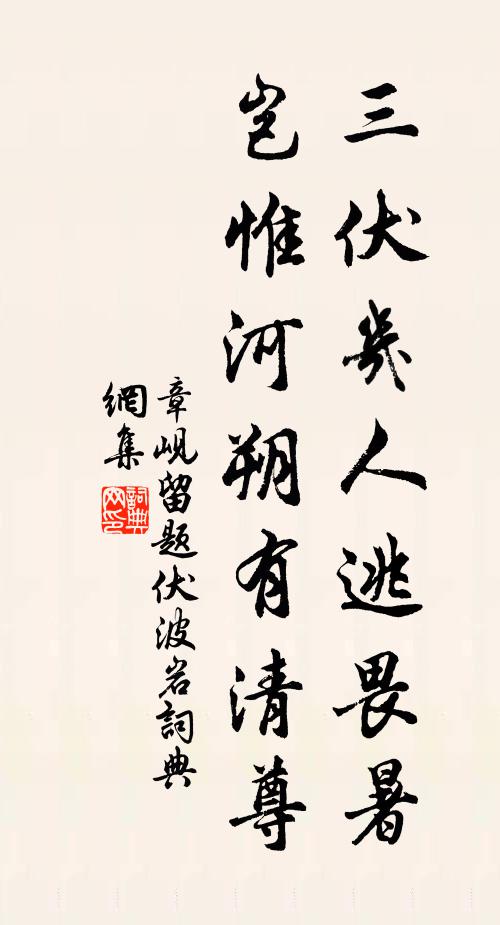 三伏幾人逃畏暑
豈惟河朔有清尊
章峴留題伏波岩詞典
網集
詞典網印